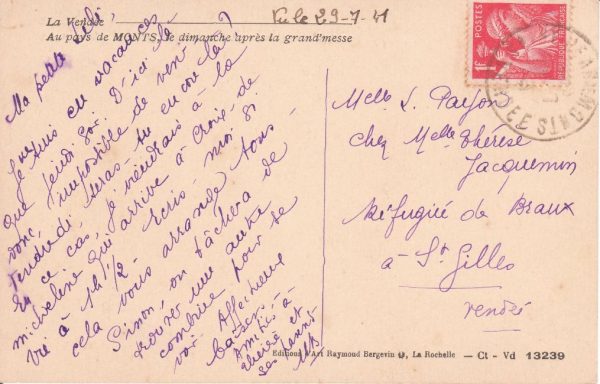 La Vendée
Vu le 29-7-41
Au pays de MONTS, le dimanche après la grand'messe
Ma petite
Je suis en vacances
que jeudi soir. D'ici là
donc, impossible de venir
Vendredi seras-tu encore là ?
En ce cas, je viendrais à la
micheline qui arrive à Croix-de
Vie à 1h 1/2. Ecris-moi si
cela vous arrange tous.
Sinon, on tâchera de
trouver une autre
combine pour se
voir. Affectueux
baisers.
Amitiés à
Thérèse et
MB
POSTES
1F
REPUBLIQUE FRANÇAISE
Melle L. Payon
chez Melle Thérèse
Jacquemin
Réfugiée de Braux
à St Gilles
Vendée
Editions d'Art Raymond Bergevin 9, La Rochelle — Ct - Vd 13239